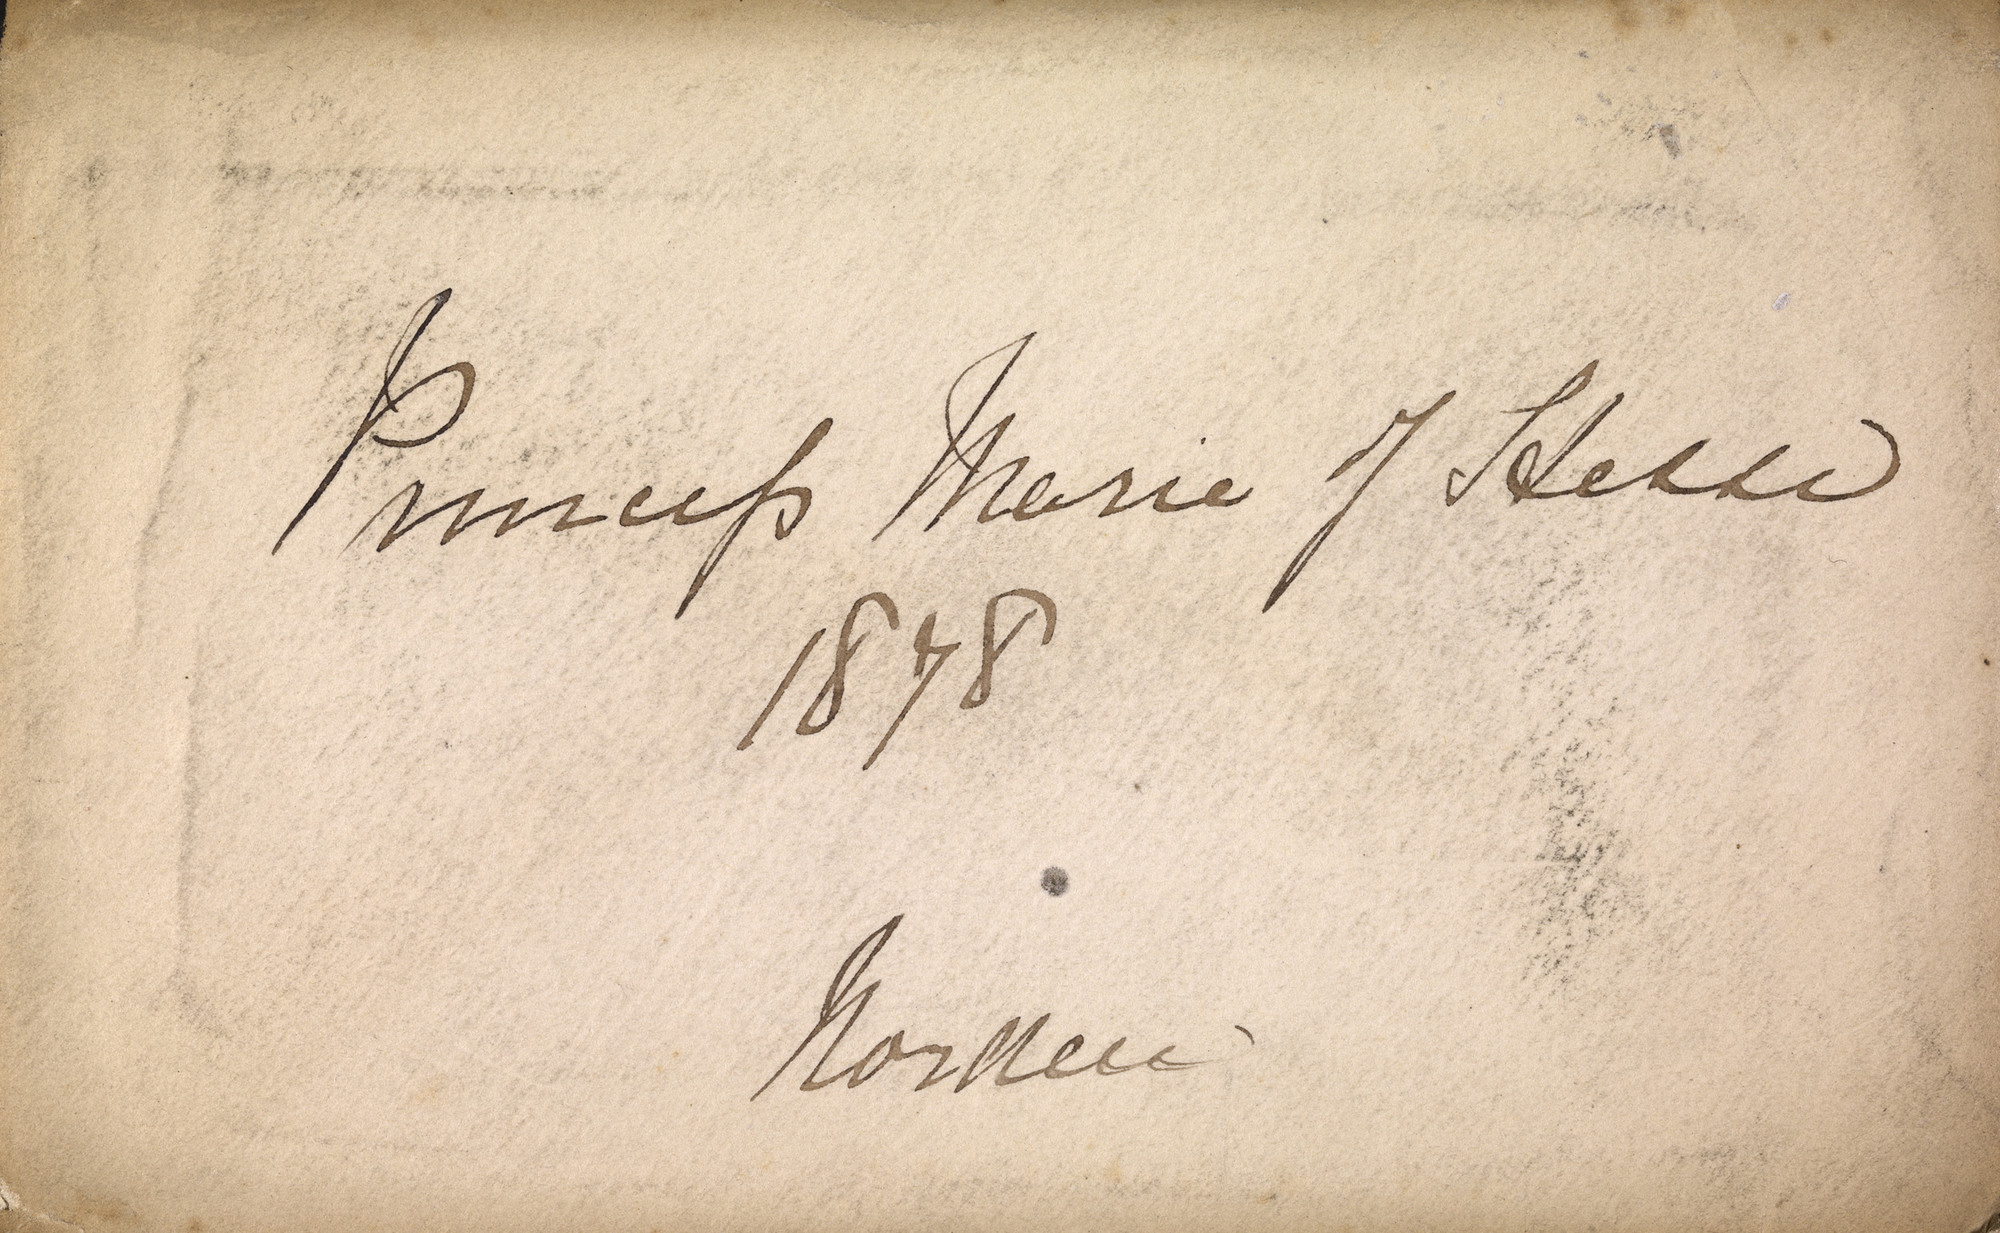 Princess Marie of Hesse
1878